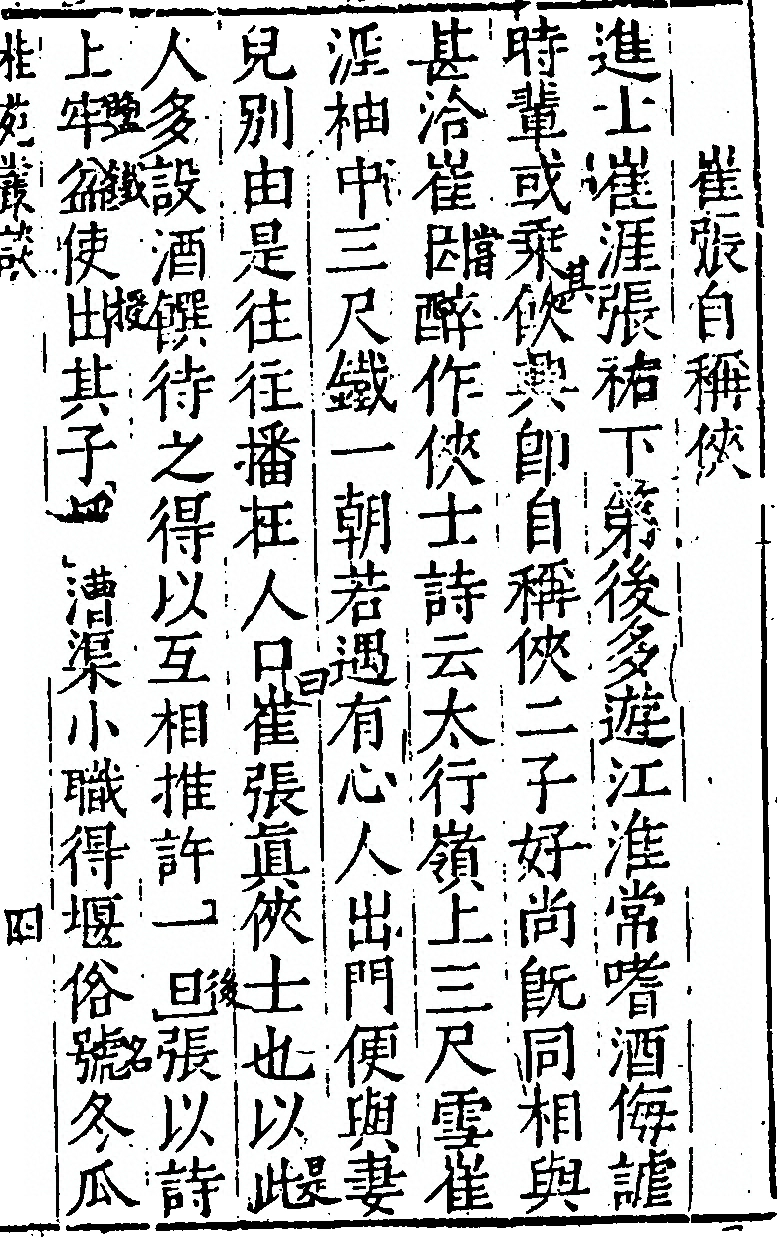 崔張自稱俠
進士崔涯張祐下第後多遊江淮常嗜酒侮謔
時輩或乘飲興即自稱俠二子好尚既同相與
其
甚洽崔因醉作俠士詩云太行嶺上三尺雪崔
嘗
涯袖中三尺鐵一朝若遇有心人出門便與妻
兒別由是往往播在人口崔張真俠士也以此
曰
是
人多設酒饌待之得以互相推許一旦張以詩
後
上牢盆使出其子 漕渠小職得堰俗號冬瓜
鹽鐵
授
名
桂苑叢談
四